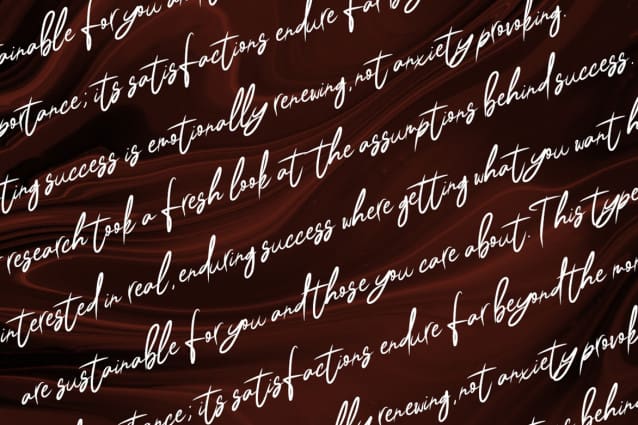 ainable for you an
portance; its satisfactions endure far bey
ting success is emotionally renewing, not anxiety provoking.
research took a fresh look at the assumptions behind success.
interested in real, enduring success where getting what you want h
are sustainable for you and those you care about. This type
ortance; its satisfactions endure far beyond the mom
lly renewing, not anxiety provok
ptions behin